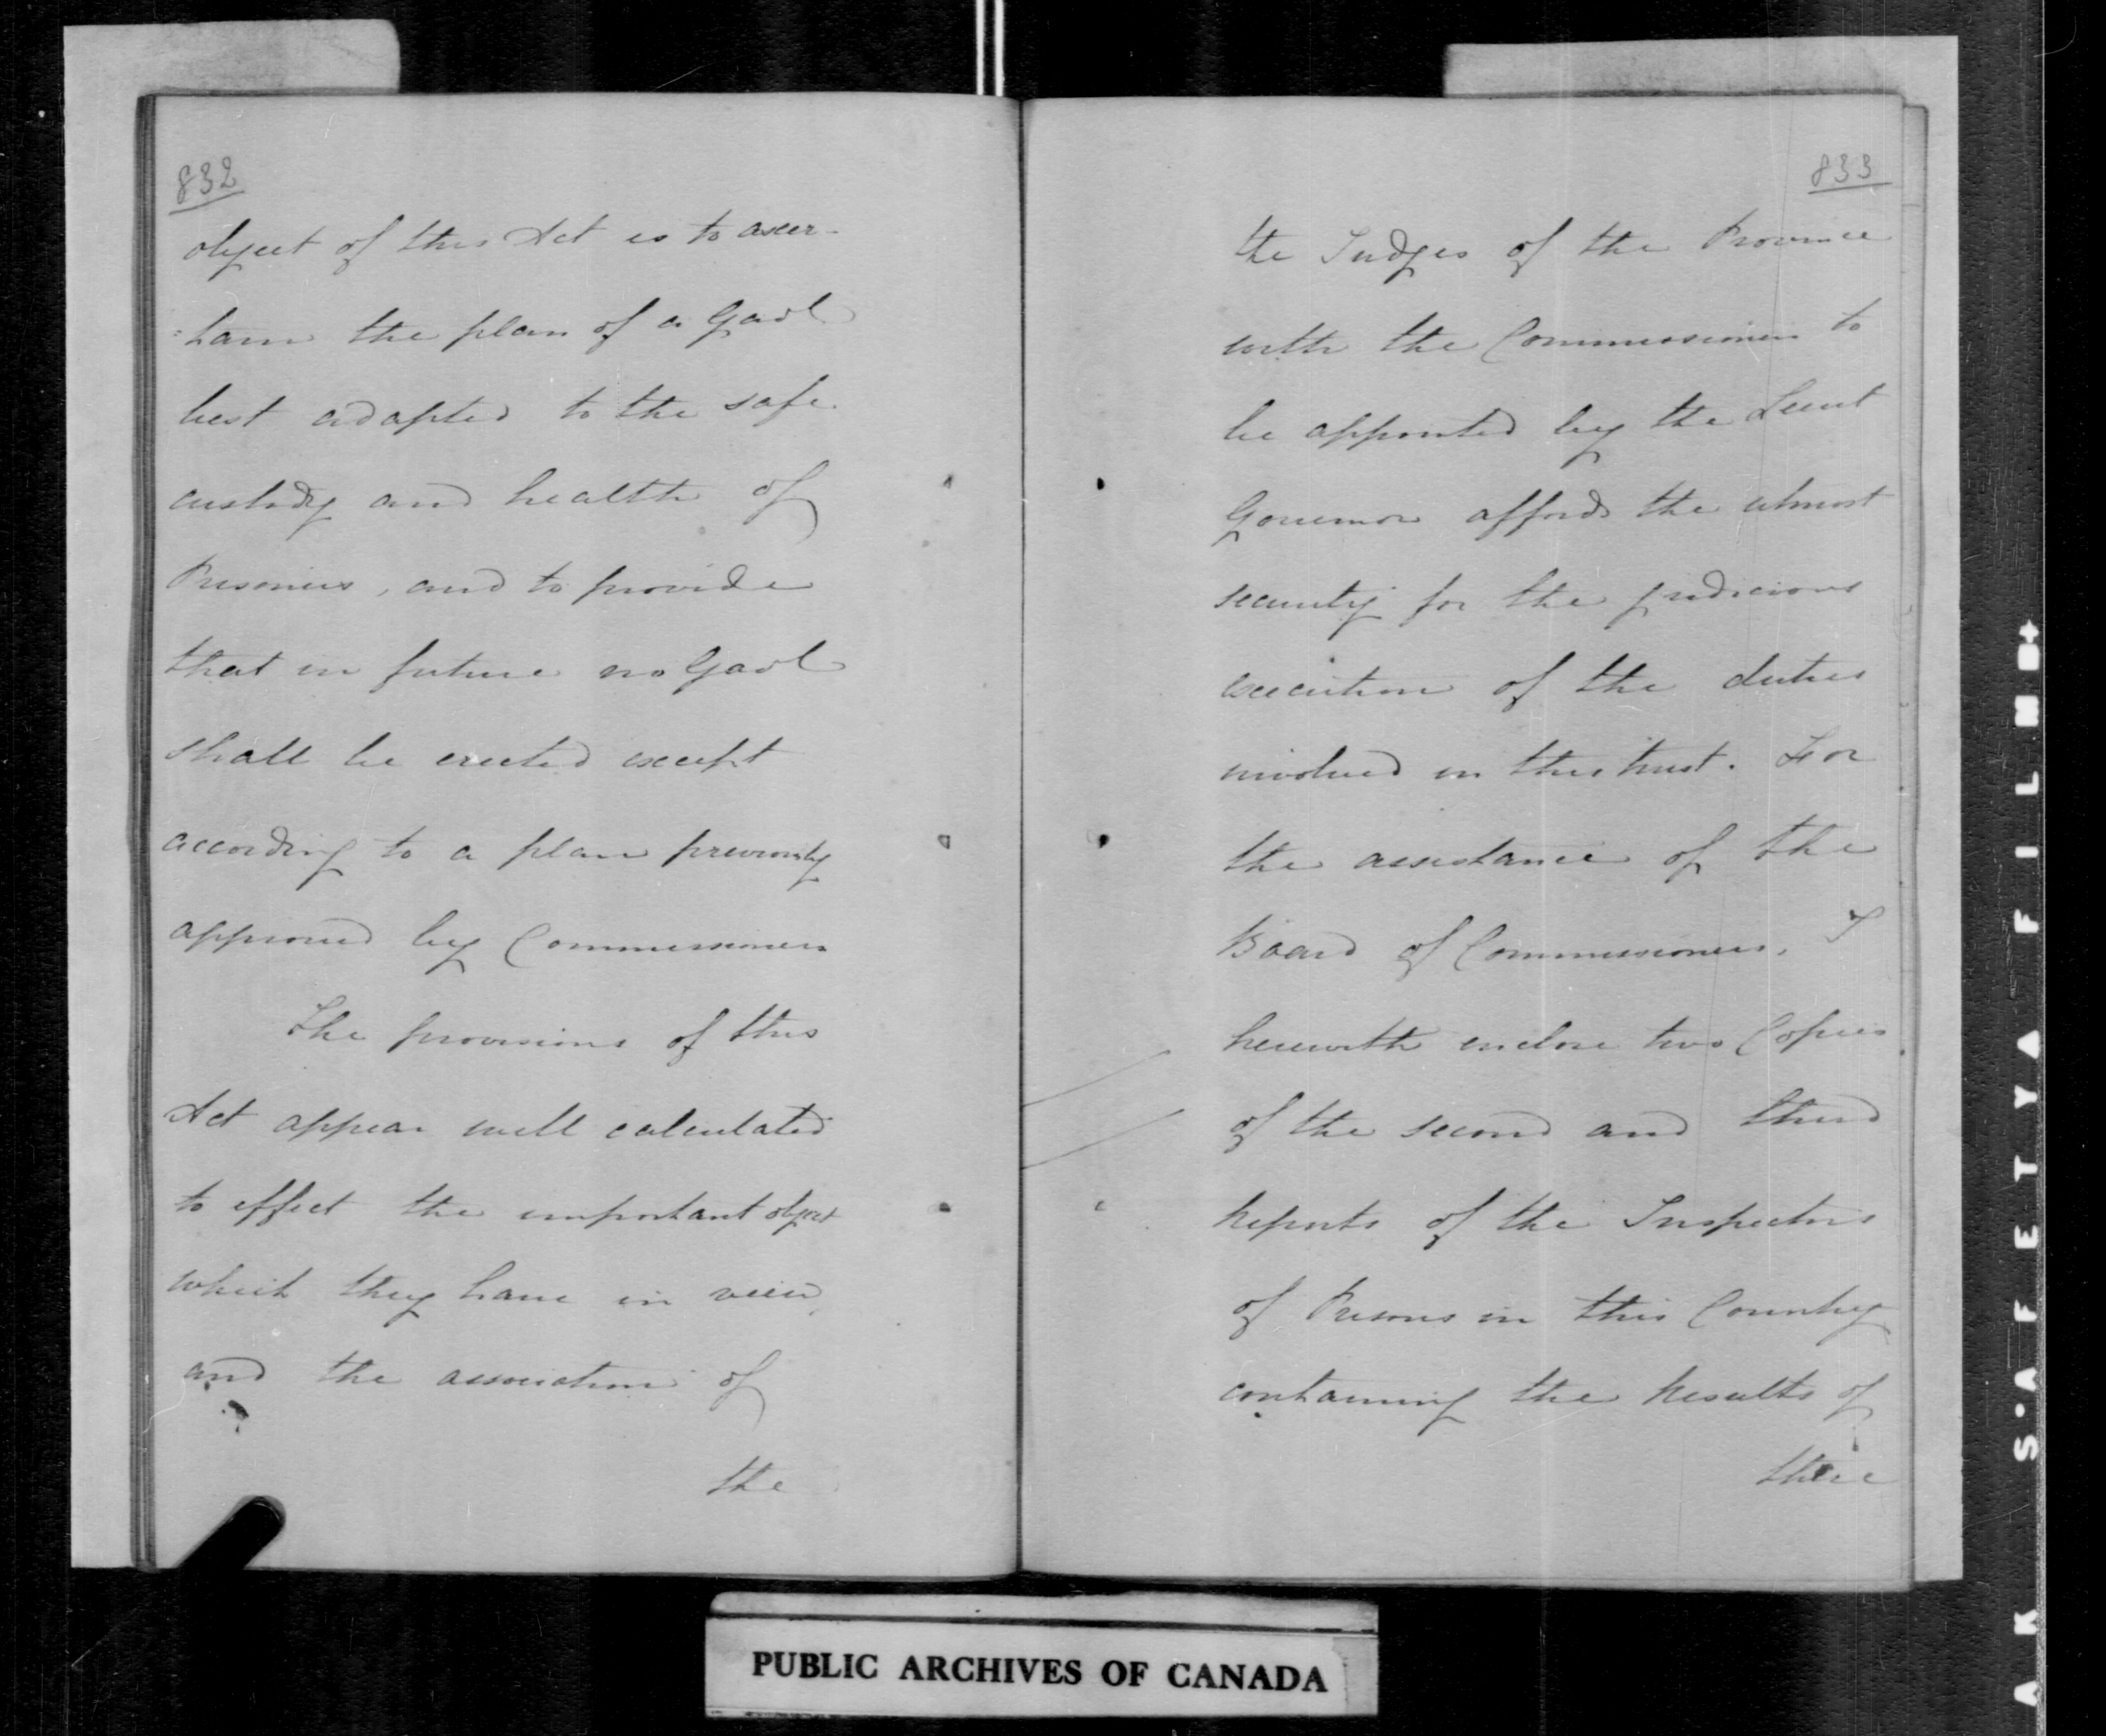 832
object of this Act is to ascer-
=tain the plan of a Gaol
best adapted to the safe
custody and health of
Prisoners, and to provide
that in future no Gaol
shall be erected except
according to a plan previously
approved by Commissioners
The provisions of this
Act appear well calculated
to effect the important object
which they have in view,
and the association of
the
833
the Judges of the Province
with the Commissioners to
be appointed by the Lieut
Governor affords the utmost
security for the judicious
execution of the duties
involved in this trust. For
the assistance of the
Board of Commissioners, I
herewith enclose two Copies
of the second and third
Reports of the Inspectors
of Prisons in this Country
containing the Results of
their
PUBLIC ARCHIVES OF CANADA
A K S·A F E T Y A F I L M